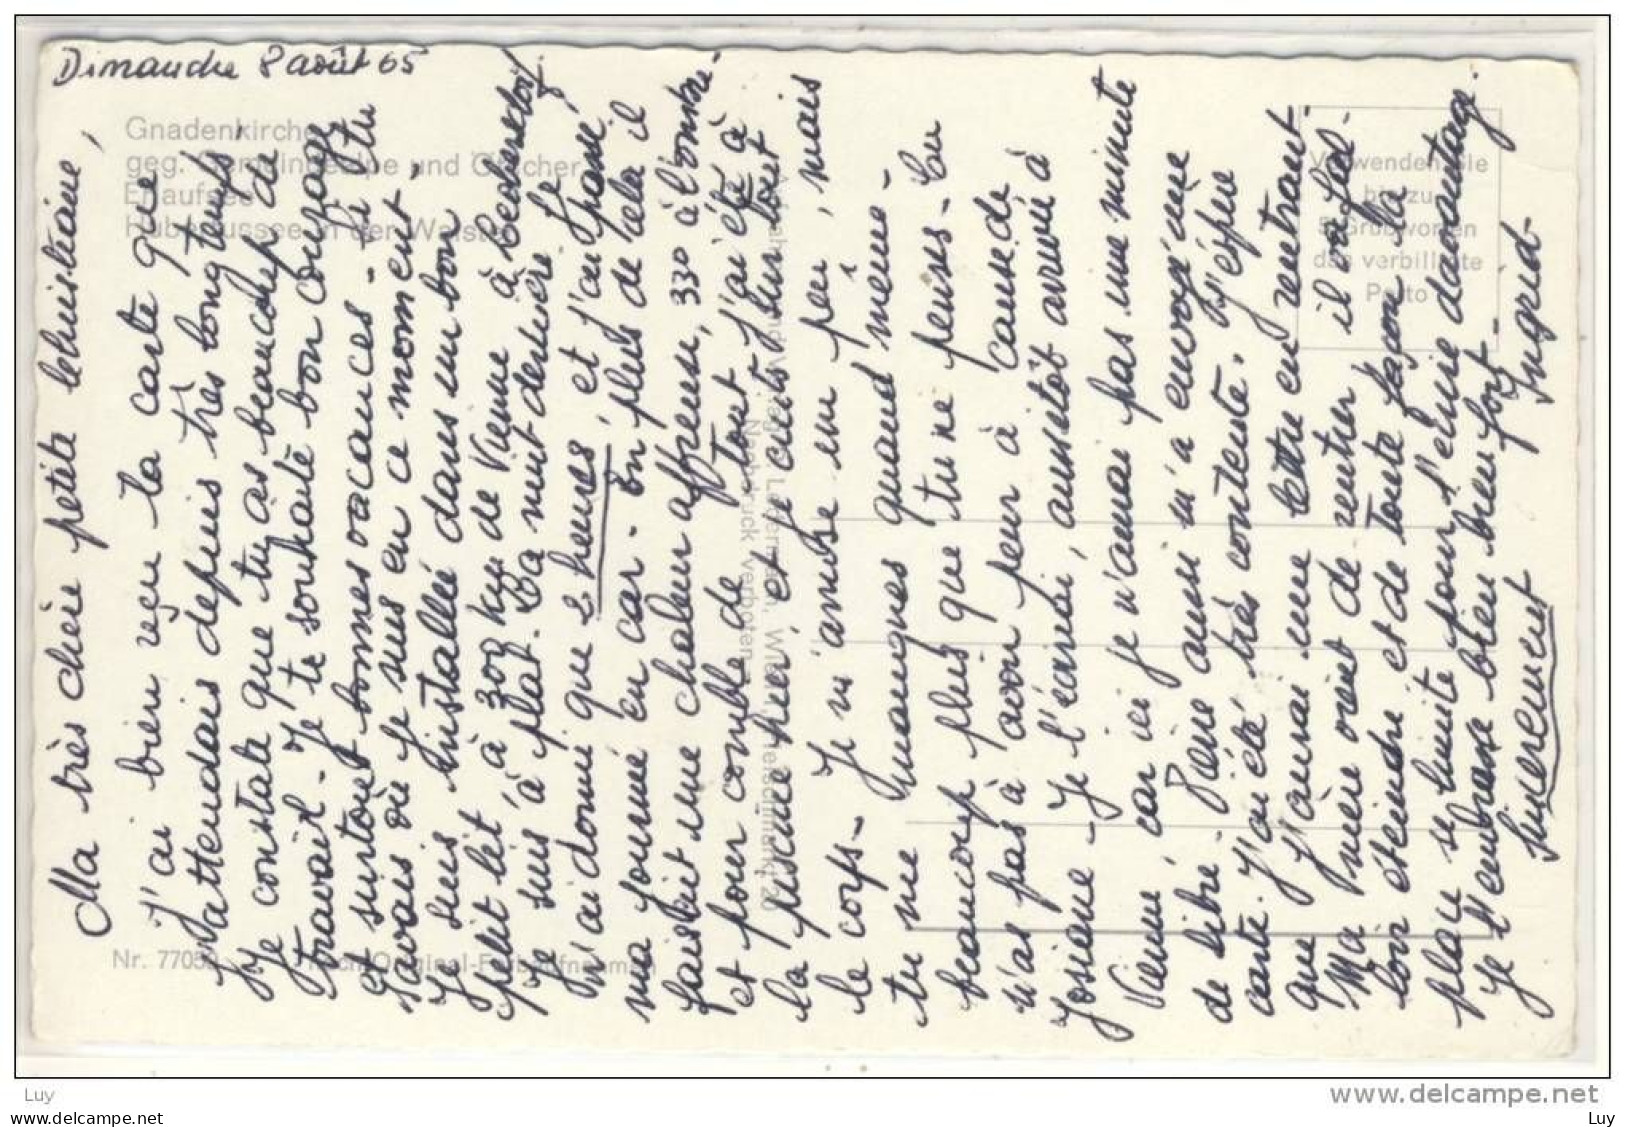 Dimanche 8 août 65
Ma très chère petite Christiane,
J'ai bien reçu la carte que
j'attendais depuis très longtemps
Je constate que tu as beaucoup de
travail - Je te souhaite bon courage
et surtout bonnes vacances - Si tu
savais où je suis en ce moment -
Je suis installée dans un bon
petit lit à 300 km de Vienne à
Je suis à plat. La nuit dernière je
n'ai dormi que 2 heures, et j'ai passé
ma journée en car - En plus de cela il
faisait une chaleur affreuse, 33° à l'ombre -
et pour comble de tout j'ai été à
la piscine hier, et je cuits surtout
le corps - Je m'amuse un peu, mais
tu me manques quand même -
beaucoup plus que tu ne penses - Tu
n'as pas à avoir peur à cause de
Josiane - Je l'écrirai, aussitôt arrivé à
Vienne, car ici je n'aurai pas une minute
de libre - aussi m'a envoyé une
carte. J'ai été très contente. J'espère
que j'aurai une lettre en rentrant -
Ma mère vient de rentrer il va fal-
loir éteindre et de toute façon la
place se limite pour l'écrire davantage.
Je t'embrasse bien bien fort -
Sincerement Ingrid -
Gnadenkirche
geg. Gemeindealpe und Ötscher
Erlaufsee
Hubertussee in der Walster
Nr. 7705
Nach Original-Farbaufnahmen
Nachdruck verboten
Verwenden Sie
hiezu
5 Grußworten
das verbilligte
Porto
Luy
www.delcampe.net
www.delcampe.net
Luy